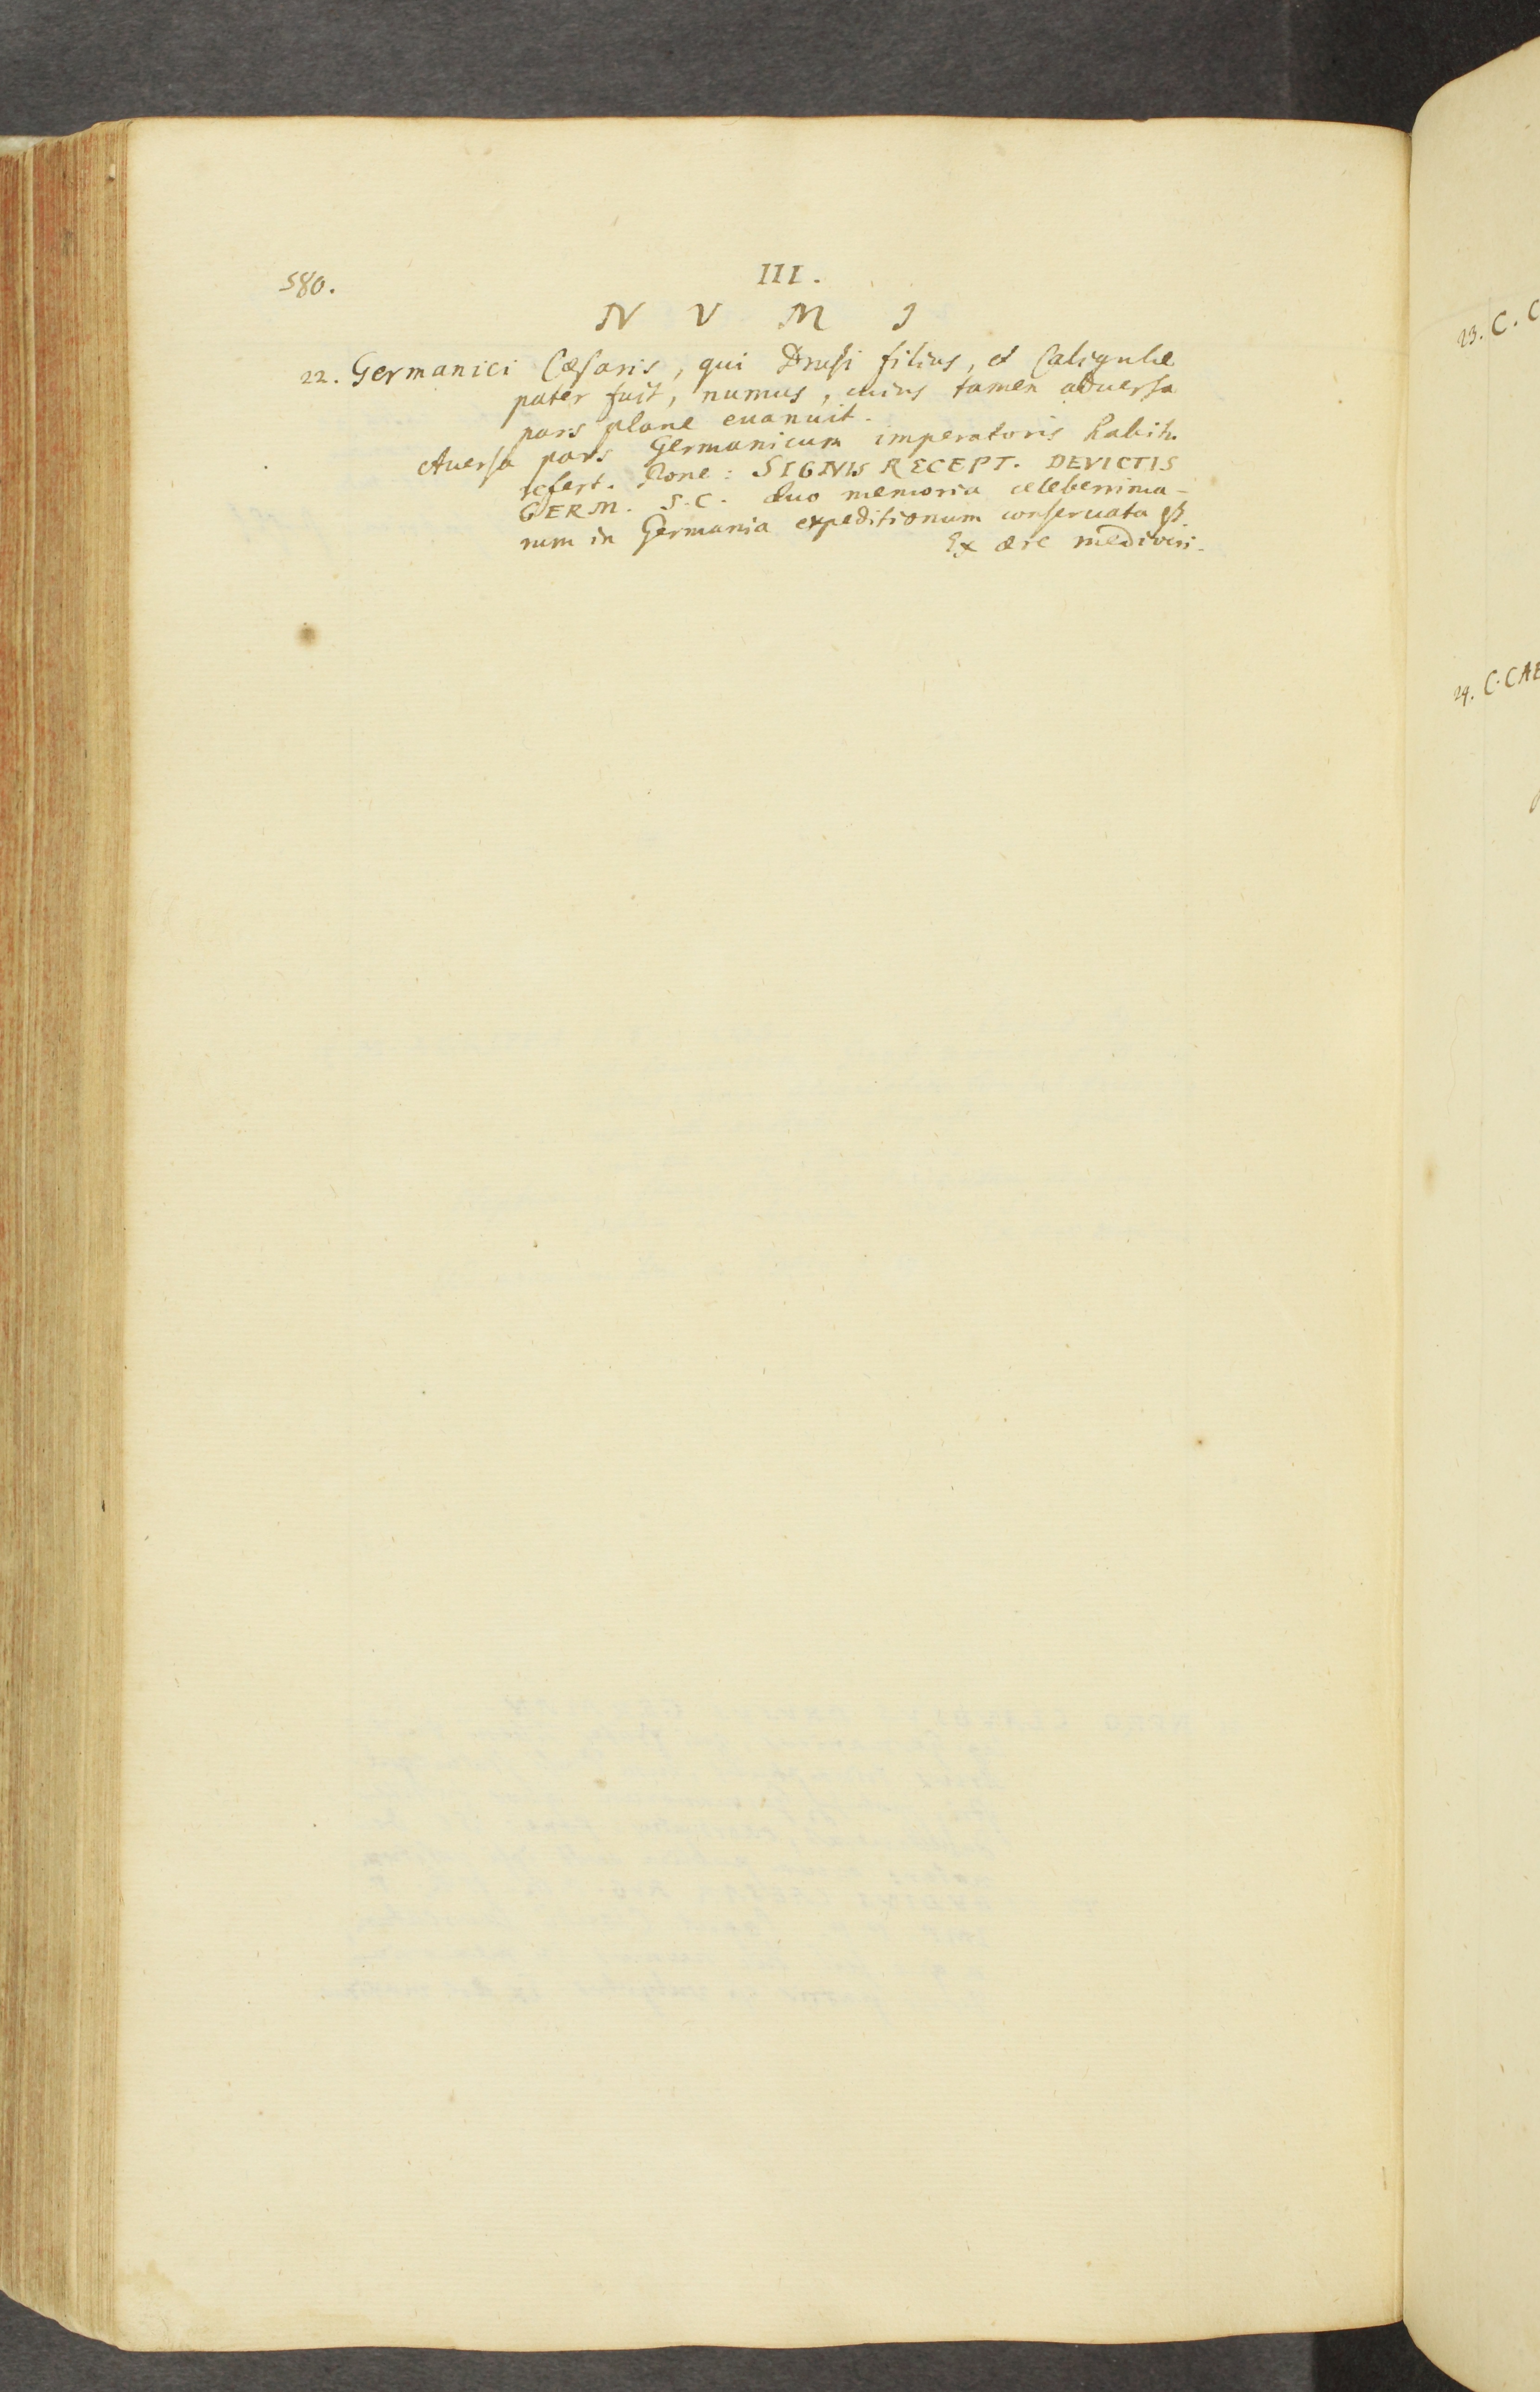 580.
III.
N V M I
22. Germanici Cæsaris, qui Drusi filius, et Caligulæ
pater fuit, numus, cuius tamen aduersa
pars plane euanuit.
Auersa pars Germanicum imperatoris habitu
refert. Pone: SIGNIS RECEPT. DEVICTIS
GERM. S.C. quo memoria celeberrima-
rum in Germania expeditionum conseruata est.
Ex ære mediocri.
23. C. C
24. C. CAE